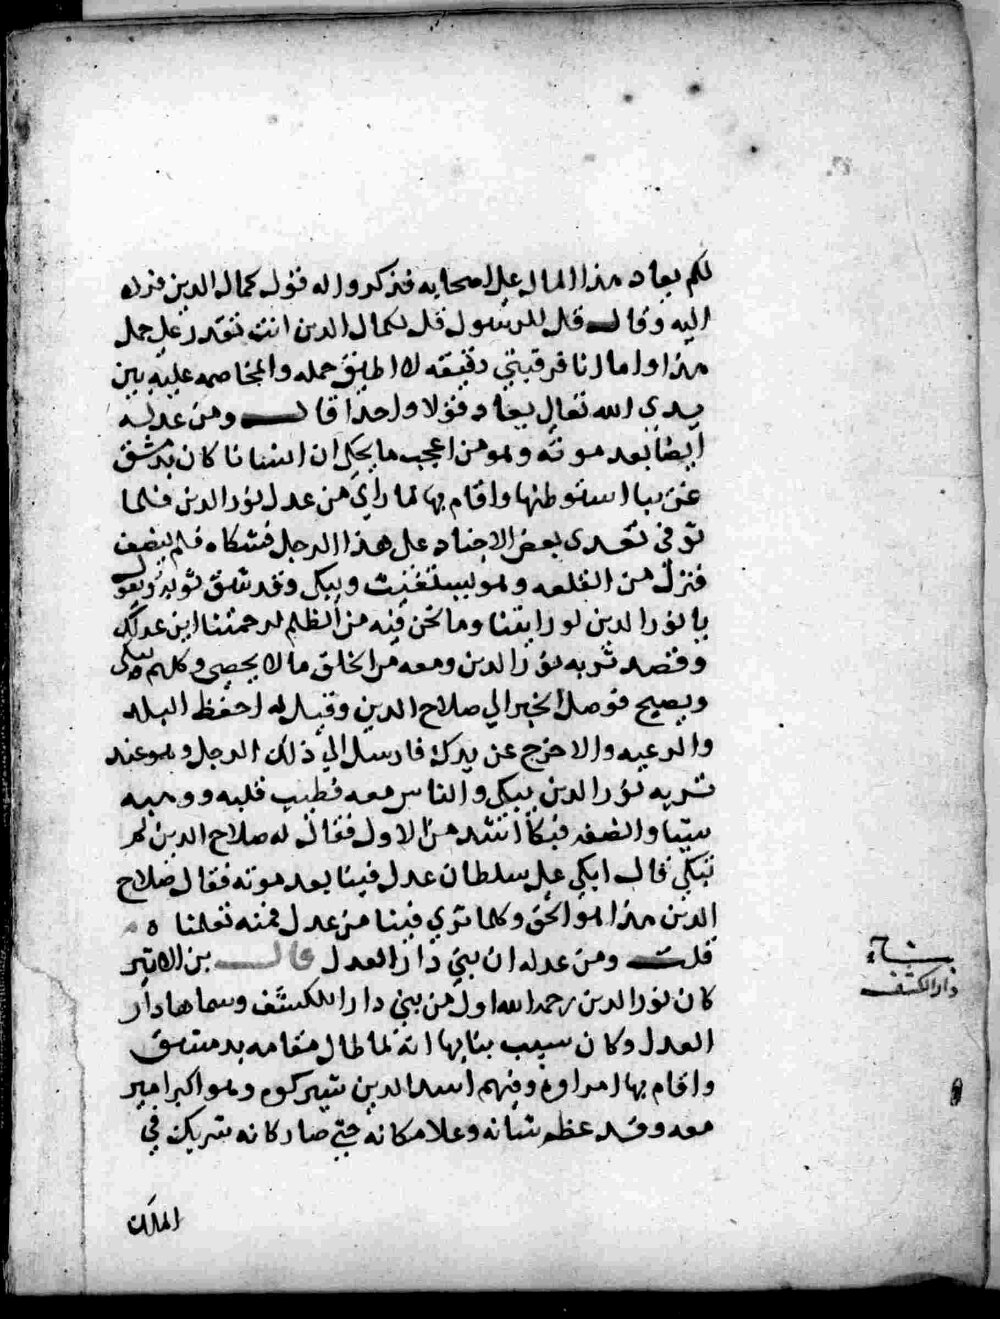 لكم يعاد هذا المال على اصحابه فذكروا له قول كمال الدين فرده
اليه وقال قل للرسول قل لكمال الدين انت تقدر على حمل
هذا واما انا فرقبتي دقيقه لا اطيق حمله والمخاصمه عليه بين
يدي الله تعالى يعاد قولا واحدا قال ومن عدله
ايضا بعد موته وهو من اعجب ما يحكى ان انسانا كان بدمشق
غريبا استوطنها واقام بها لما راى من عدل نور الدين فلما
توفى تعدى بعض الاجناد على هذا الرجل فشكاه فلم ينصف
فنزل من القلعه وهو يستغيث ويبكي وقد شق ثوبه ويقول
يا نور الدين لو رايتنا وما نحن فيه من الظلم لرحمتنا اين عدلك
وقصد تربه نور الدين ومعه من الخلق ما لا يحصى وكلهم يبكى
ويصيح فوصل الخبر الى صلاح الدين وقيل له احفظ البلد
والرعيه والا خرج عن يدك فارسل الى ذلك الرجل وهو عند
تربه نور الدين يبكي والناس معه فطيب قلبه ووهبه
شيئا وانصفه فبكا اشد من الاول فقال له صلاح الدين لم
تبكي قال ابكي على سلطان عدل فينا بعد موته فقال صلاح
الدين هذا هو الحق وكلما ترى فينا من عدل فمنه تعلمنا ه
قلت ومن عدله ان بنى دار العدل قال بن الاثير
كان نور الدين رحمه الله اول من بنى دارا للكشف وسماها دار
العدل وكان سبب بنايها انه لما طال مقامه بدمشق
واقام بها امراوه وفيهم اسد الدين شيركوه وهو اكبر امير
معه وقد عظم شانه وعلا مكانه حتى صار كانه شريك في
الملك
بناء
دار الكشف